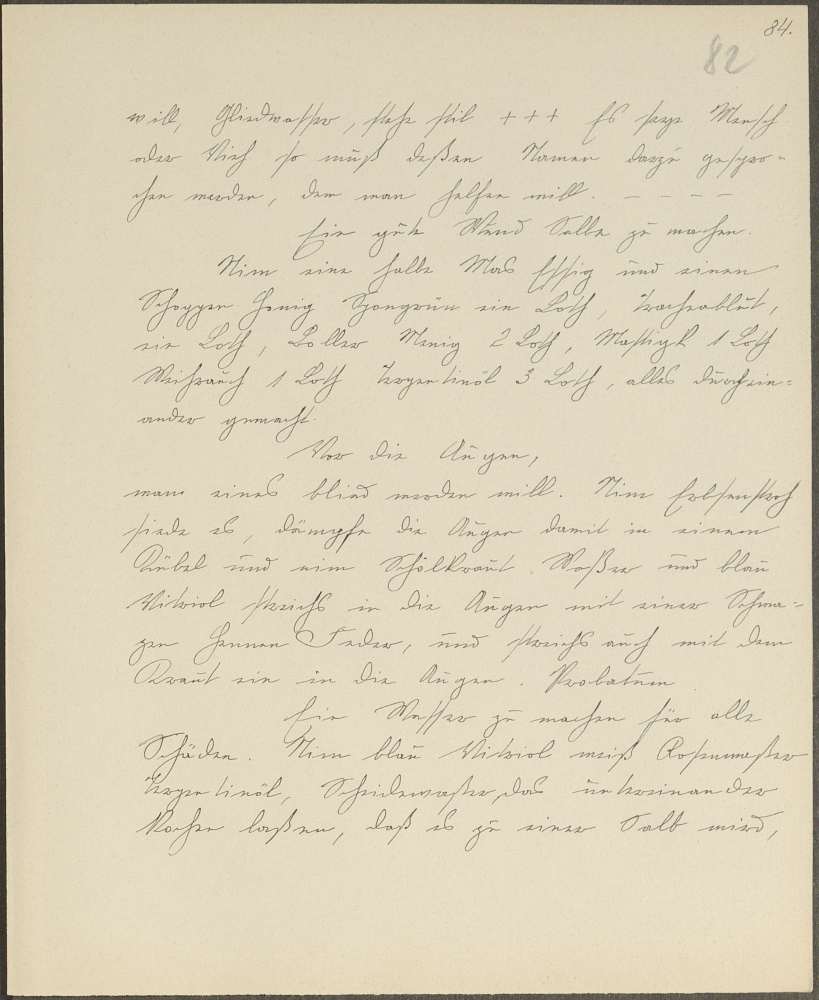 84.
82
will, Gliedwasser, stehe stil +++ Es seye Mensch
oder Vieh so muß deßen Namen darzu gespro-
chen werden, dem man helfen will. – – – –
Ein gute Wund Salbe zu machen.
Nim eine halbe Mas Essig und einen
Schoppen Honig Spongrün ein Loth, Trachenblut,
ein Loth, Boller Menig 2 Loth, Mastigk 1 Loth
Weihrauch 1 Loth Terpentinöl 3 Loth, alles durchein-
ander gemacht.
Vor die Augen,
wann eines blind werden will. Nim Erbsenstroh
siede es, dämpfe die Augen damit in einem
Kübel und nim Schölkraut. Waßer und blau
Vitriol streichs in die Augen mit einer Schwa-
zen Hennen Feder, und streichs auch mit dem
Kraut ein in die Augen. Probatum
Ein Wasser zu machen für alle
Schäden. Nim blau Vitriol weiß Rosenwasser
Terpentinöl, Scheidewasser, das untereinander
Kochen laßen, daß es zu einer Salb wird,